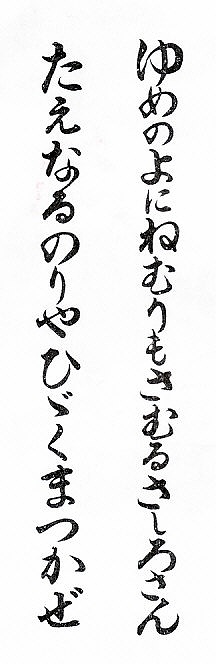 ゆめのよにねむりもさむるさしろさん
たえなるのりやひゞくまつかぜ